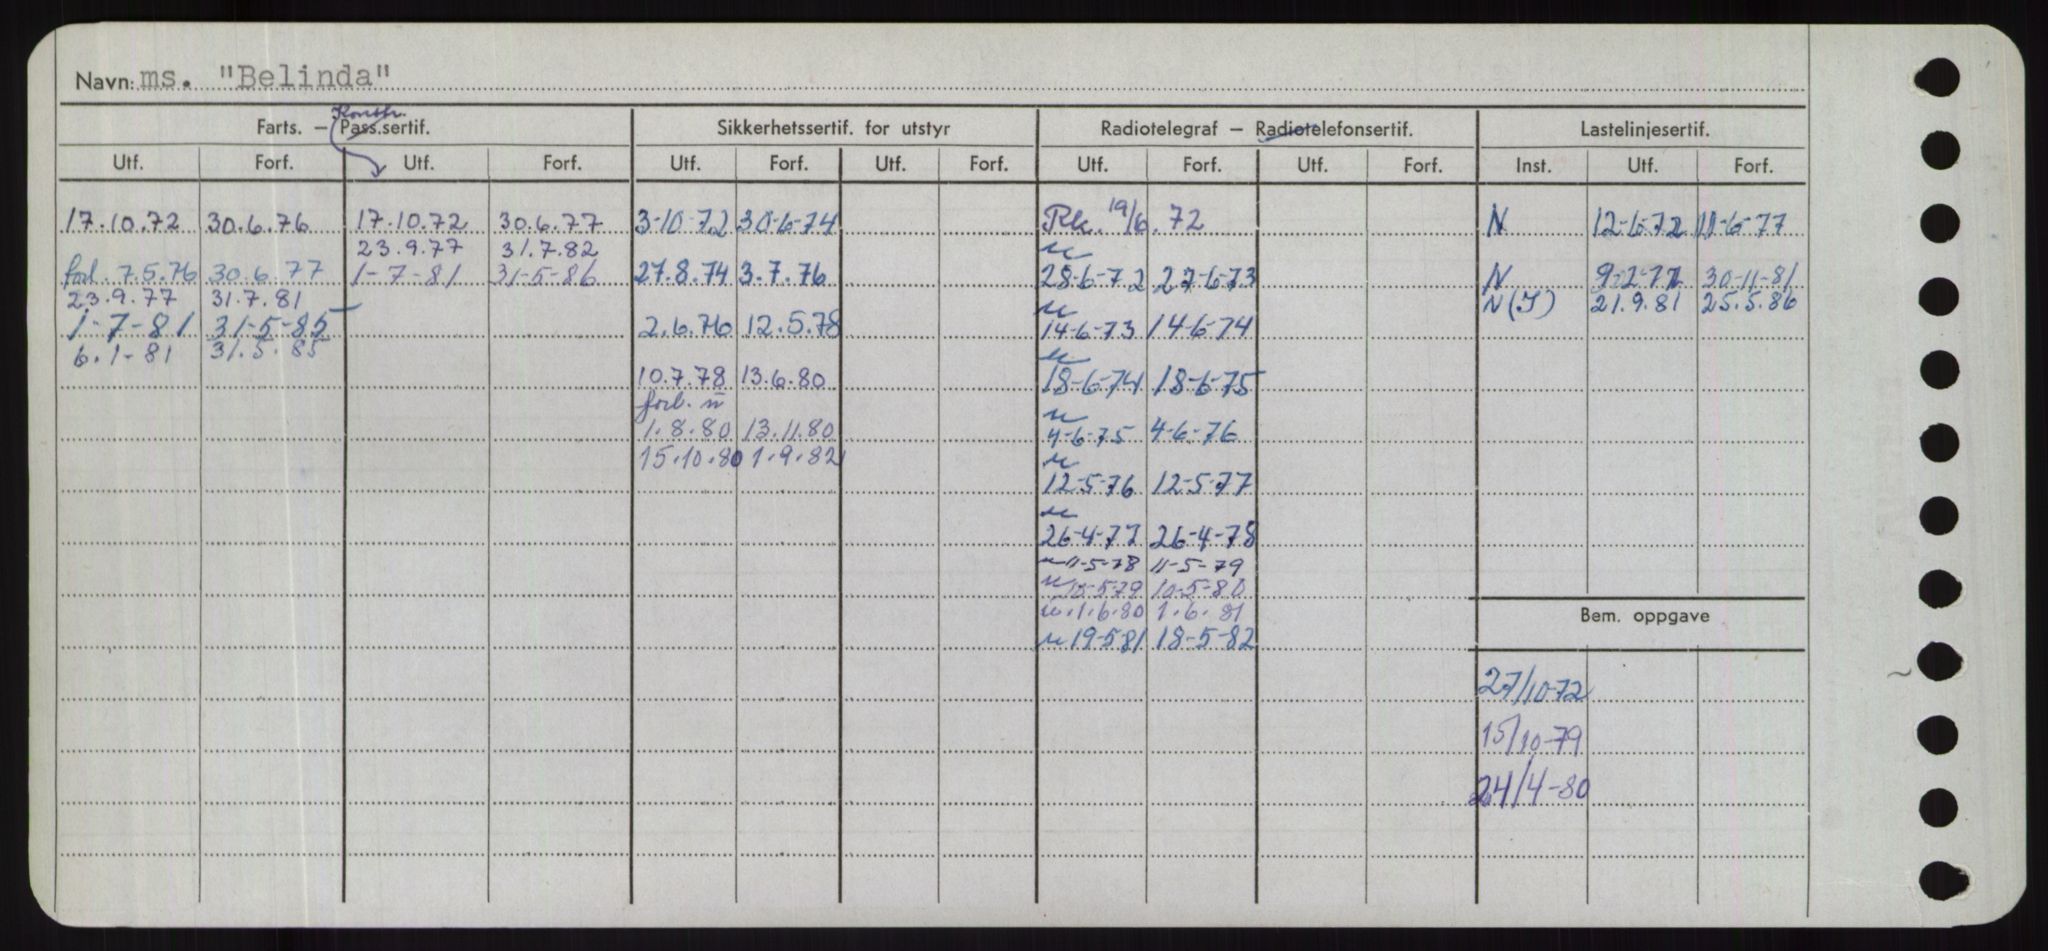 Navn: ms. "Belinda"
Konstr.
Farts. – Pass.sertif. Sikkerhetssertif. for utstyr Radiotelegraf – Radiotelefonsertif. Lastelinjesertif.
Utf. Forf. Utf. Forf. Utf. Forf. Utf. Forf. Utf. Forf. Utf. Forf. Inst. Utf. Forf.
17.10.72 30.6.76 17.10.72 30.6.77 3-10-72 30-6-74 19/6.72 N 12-6-72 11-6-77
23.9.77 31.7.82
forl. 7.5.76 30.6.77 1-7-81 31-5-86 27.8.74 3.7.76 28-6-72 27-6-73 N 30-11-81
23.9.77 31.7.81 N(I) 21.9.81 25.5.86
1-7-81 31-5-85 2.6.76 12.5.78 14-6-73 14-6-74
6.1-81 31.5.85
10.7.78 13.6.80 18-6-74 18-6-75
forl. n
1.8.80 13.11.80 4-6-75 4-6-76
15.10.80 1.9.82
12-5-76 12-5-77
26-4-77 26-4-78
n 11-5-78 11-5-79
n 10-5-79 10-5-80
n.1.6.80 1.6.81
n 19-5-81 18-5-82
Bem. oppgave
27/10-72
15/10-79
24/4-80